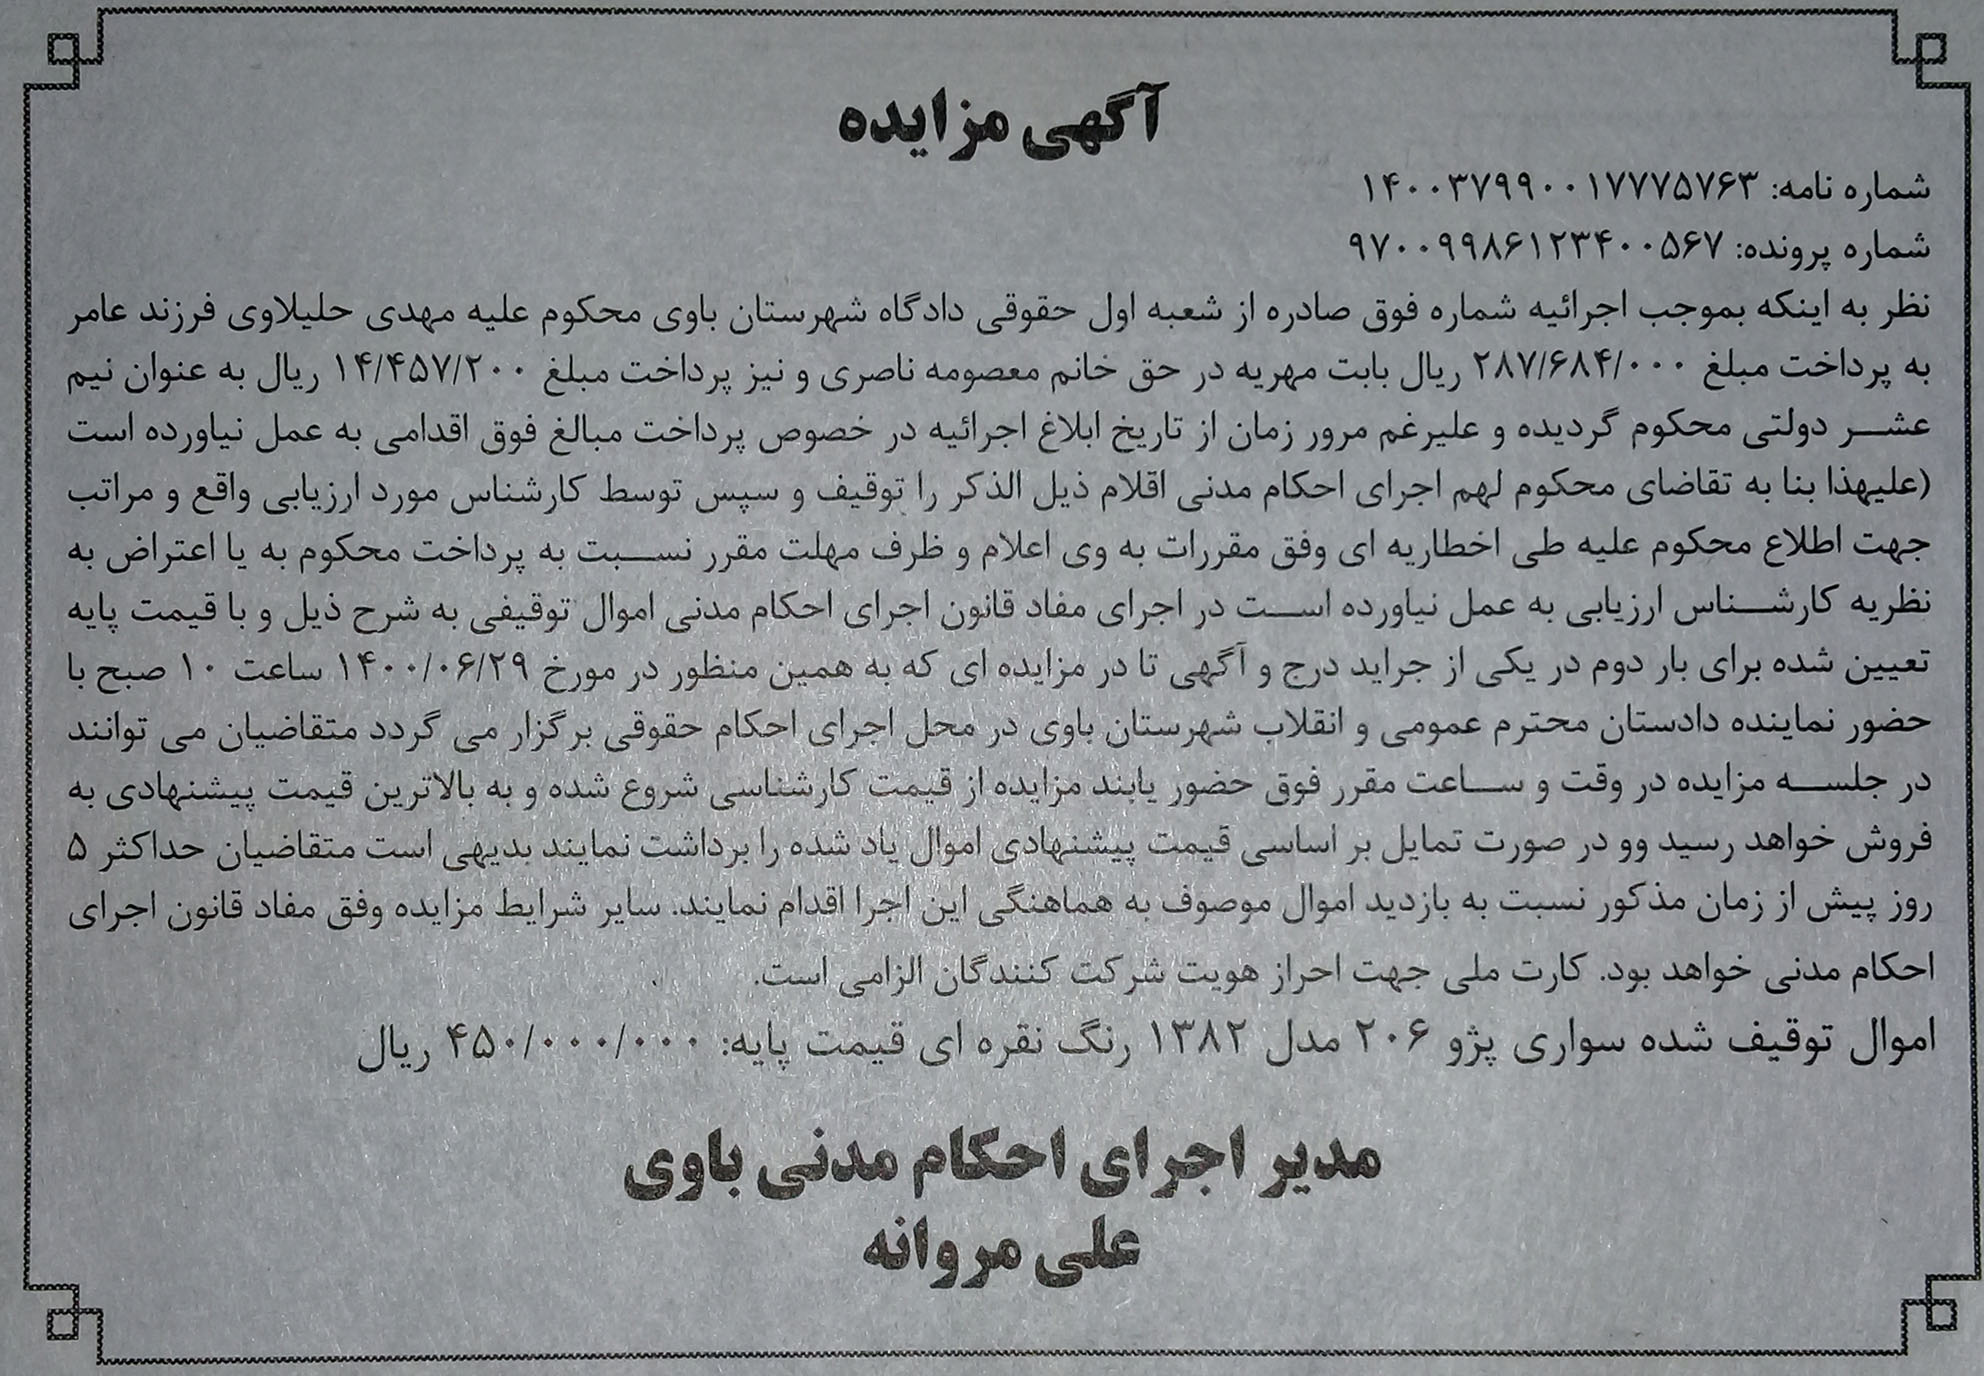 آگهی مزایده
شماره نامه: ۱۴۰۰۳۷۹۹۰۰۱۷۷۷۵۷۶۳
شماره پرونده: ۹۷۰۰۹۹۸۶۱۲۳۴۰۰۵۶۷
نظر به اینکه بموجب اجرائیه شماره فوق صادره از شعبه اول حقوقی دادگاه شهرستان باوی محکوم علیه مهدی حلیلاوی فرزند عامر
به پرداخت مبلغ ۲۸۷/۶۸۴/۰۰۰ ریال بابت مهریه در حق خانم معصومه ناصری و نیز پرداخت مبلغ ۱۴/۴۵۷/۲۰۰ ریال به عنوان نیم
عشر دولتی محکوم گردیده و علیرغم مرور زمان از تاریخ ابلاغ اجرائیه در خصوص پرداخت مبالغ فوق اقدامی به عمل نیاورده است
(علیهذا بنا به تقاضای محکوم لهم اجرای احکام مدنی اقلام ذیل الذکر را توقیف و سپس توسط کارشناس مورد ارزیابی واقع و مراتب
جهت اطلاع محکوم علیه طی اخطاریه ای وفق مقررات به وی اعلام و ظرف مهلت مقرر نسبت به پرداخت محکوم به یا اعتراض به
نظریه کارشناس ارزیابی به عمل نیاورده است در اجرای مفاد قانون اجرای احکام مدنی اموال توقیفی به شرح ذیل و با قیمت پایه
تعیین شده برای بار دوم در یکی از جراید درج و آگهی تا در مزایده ای که به همین منظور در مورخ ۱۴۰۰/۰۶/۲۹ ساعت ۱۰ صبح با
حضور نماینده دادستان محترم عمومی و انقلاب شهرستان باوی در محل اجرای احکام حقوقی برگزار می گردد متقاضیان می توانند
در جلسه مزایده در وقت و ساعت مقرر فوق حضور یابند مزایده از قیمت کارشناسی شروع شده و به بالاترین قیمت پیشنهادی به
فروش خواهد رسید وو در صورت تمایل بر اساسی قیمت پیشنهادی اموال یاد شده را برداشت نمایند بدیهی است متقاضیان حداکثر ۵
روز پیش از زمان مذکور نسبت به بازدید اموال موصوف به هماهنگی این اجرا اقدام نمایند. سایر شرایط مزایده وفق مفاد قانون اجرای
احکام مدنی خواهد بود. کارت ملی جهت احراز هویت شرکت کنندگان الزامی است.
اموال توقیف شده سواری پژو ۲۰۶ مدل ۱۳۸۲ رنگ نقره ای قیمت پایه: ۴۵۰/۰۰۰/۰۰۰ ریال
مدیر اجرای احکام مدنی باوی
علی مروانه